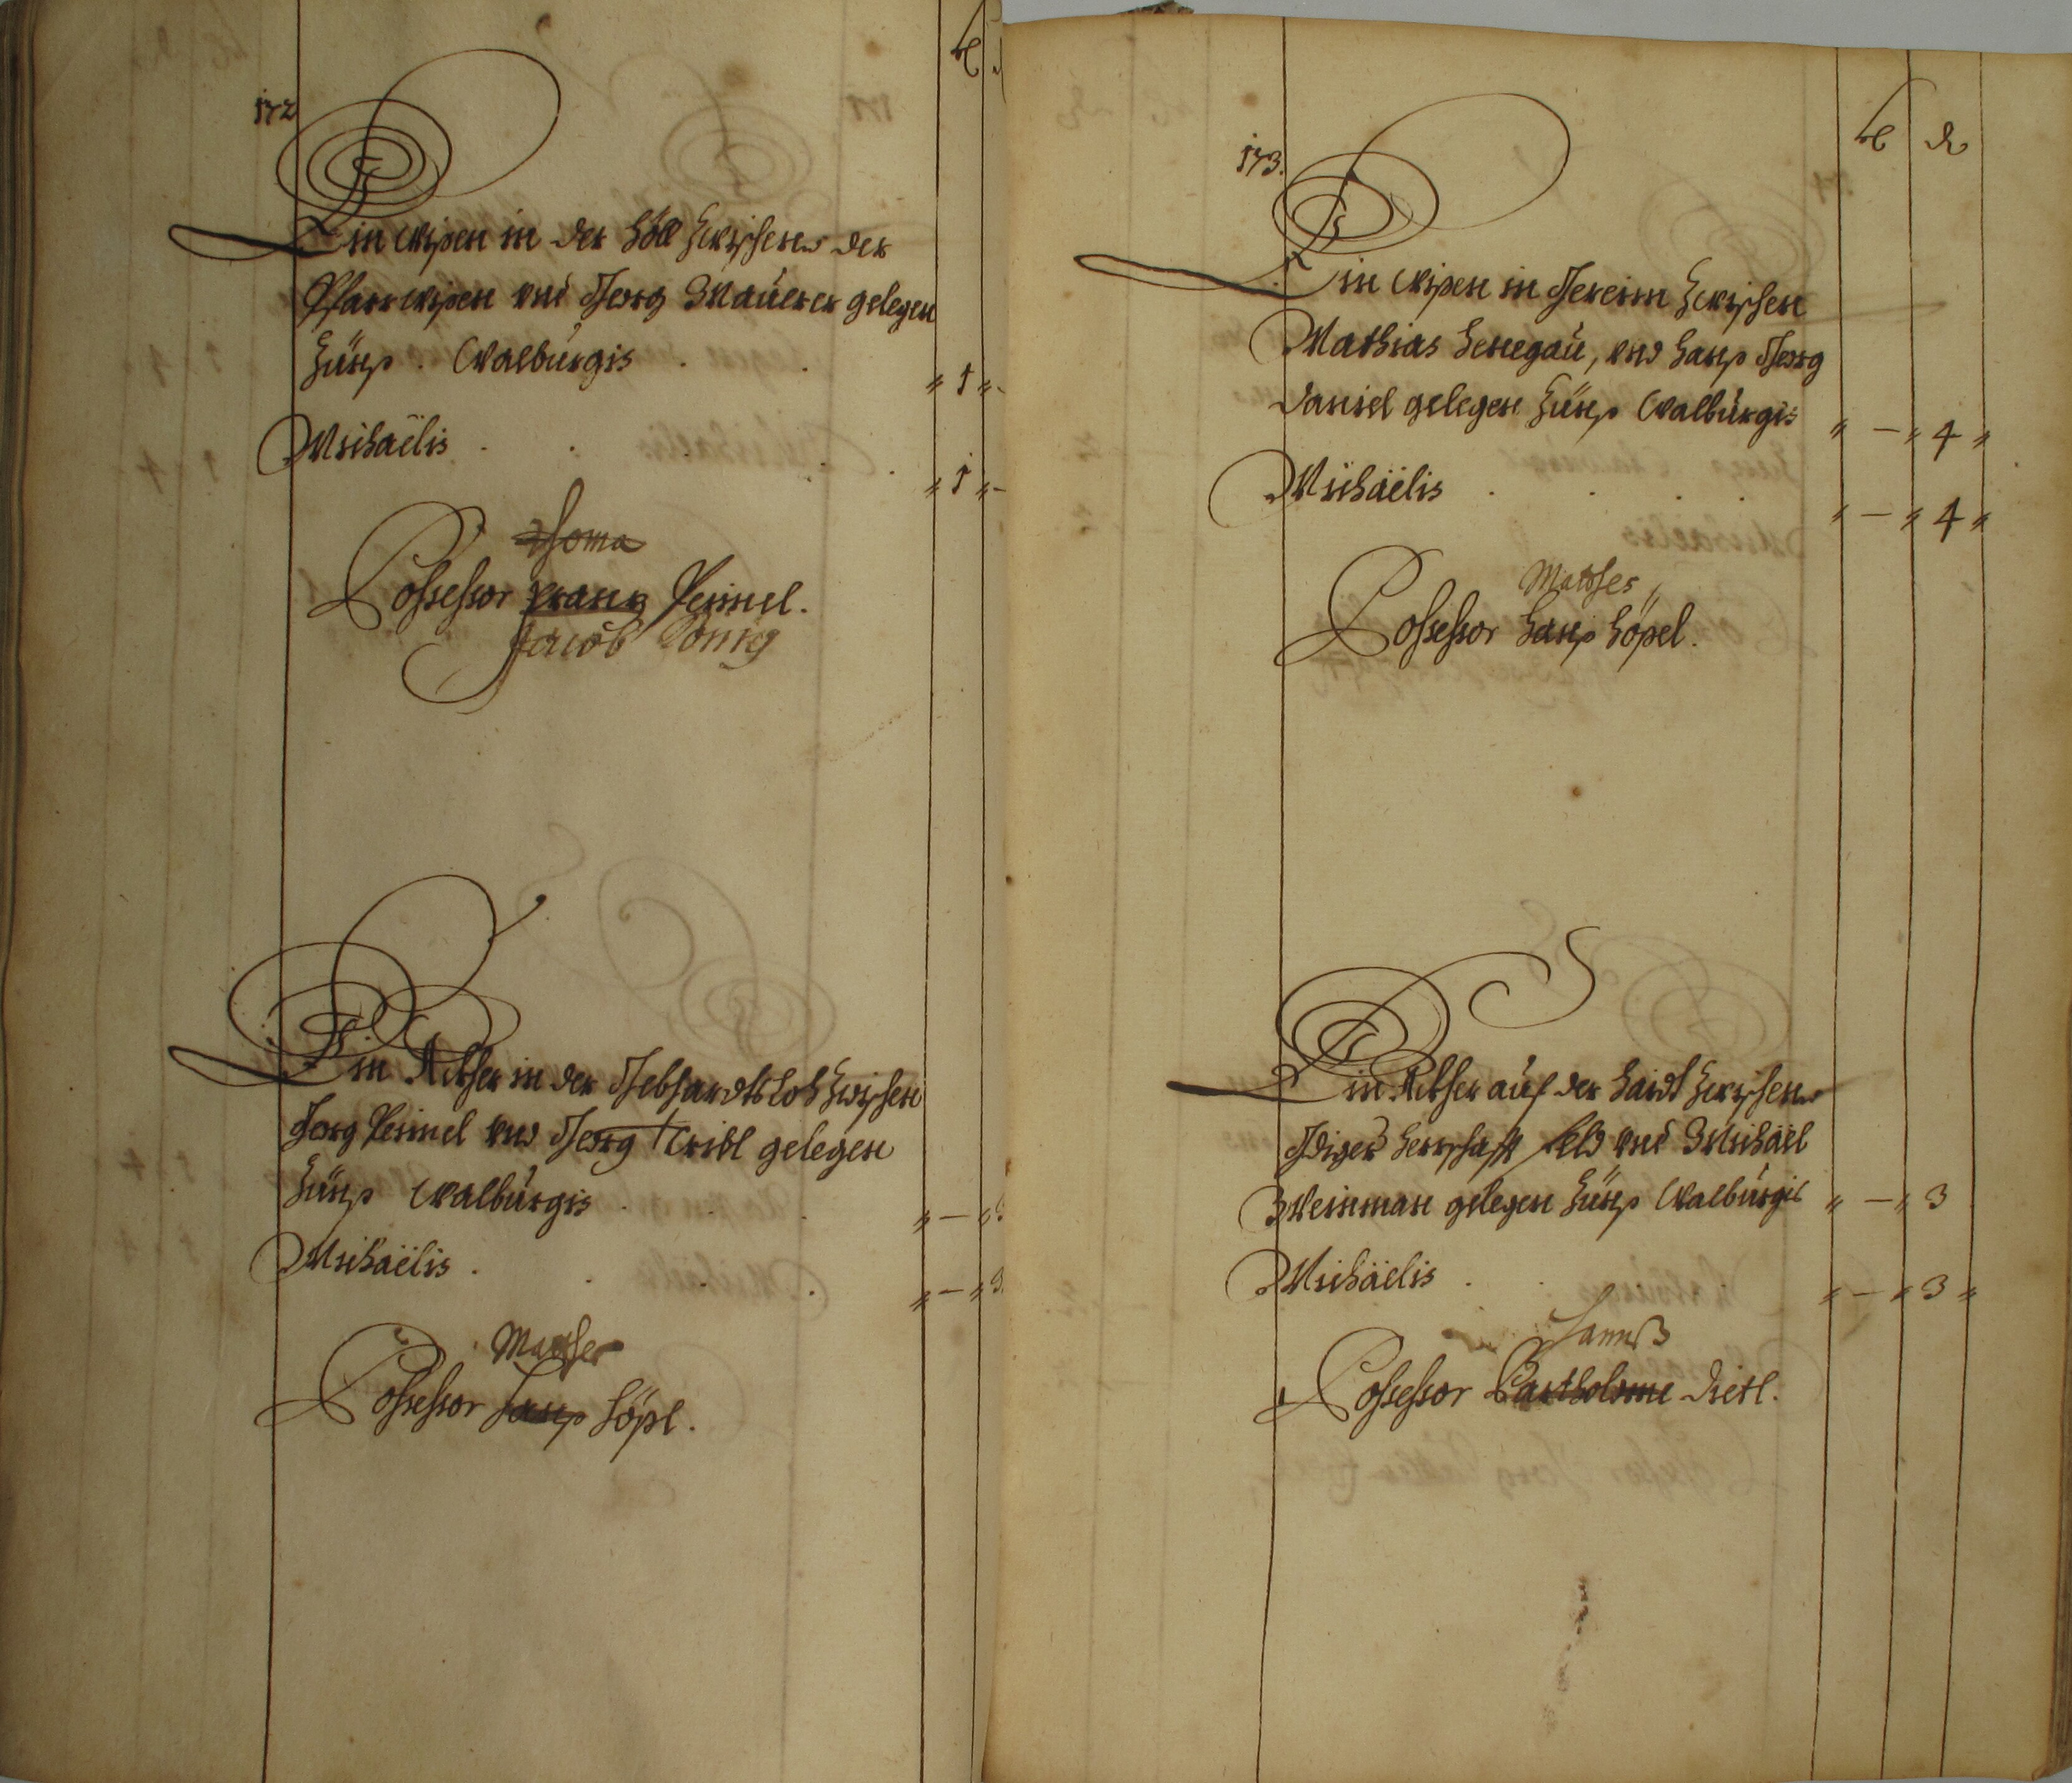 172
Ein Wisen in der Höll Zwischen der
Pfarr Wisen vnd Georg Mauerer gelegen
Zünß. Walburgis . . " 1 " -
Michaëlis . . . . " 1 " -
Thoma
Possessor Frantz Peimel.
Jacob König
Ein Ackher in der Gebhardtsloh Zwischen
Georg Peimel vnd Georg Tribl gelegen
Zünß Walburgis . . . " - "
Michaëlis . . . . " - " 3
Mathes
Possessor Hanß Höpl.
173.
Ein Wisen in Zwischen
Mathias Henegau, vnd Hanß Georg
Daniel gelegen Zünß Walburgis " - " 4 "
Michaëlis . . . . " - " 4 "
Mathes
Possessor Hanß Höpel.
Ein Ackher auf der Haidt Zwischen
Herrschafft Feld vnd Michaël
Weinman gelegen Zünß Walburgis " - " 3
Michaëlis . . " - " 3 "
Hannß
Possessor Bartholome Dietl.